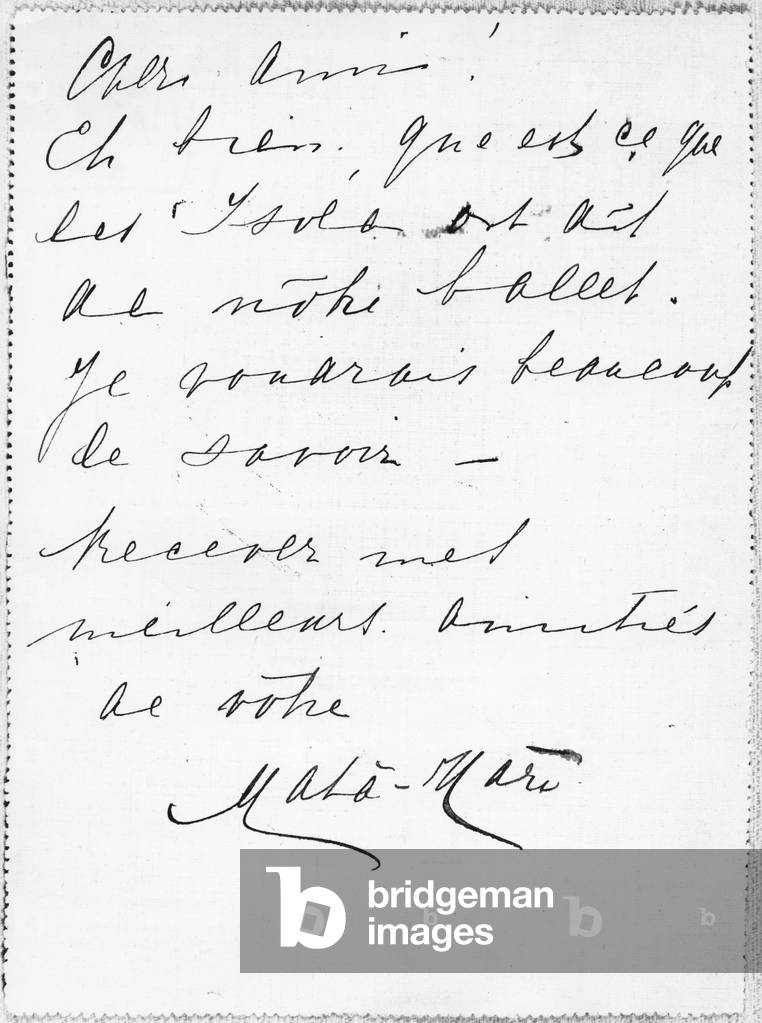 Cher ami!
Eh bien, que est ce que
les Isola ont dit
de nôtre ballet.
Je voudrais beaucoup
le savoir —
Recever mes
meilleurs amitiés
de vôtre
Mata-Hari
bridgeman
images
b
b
b